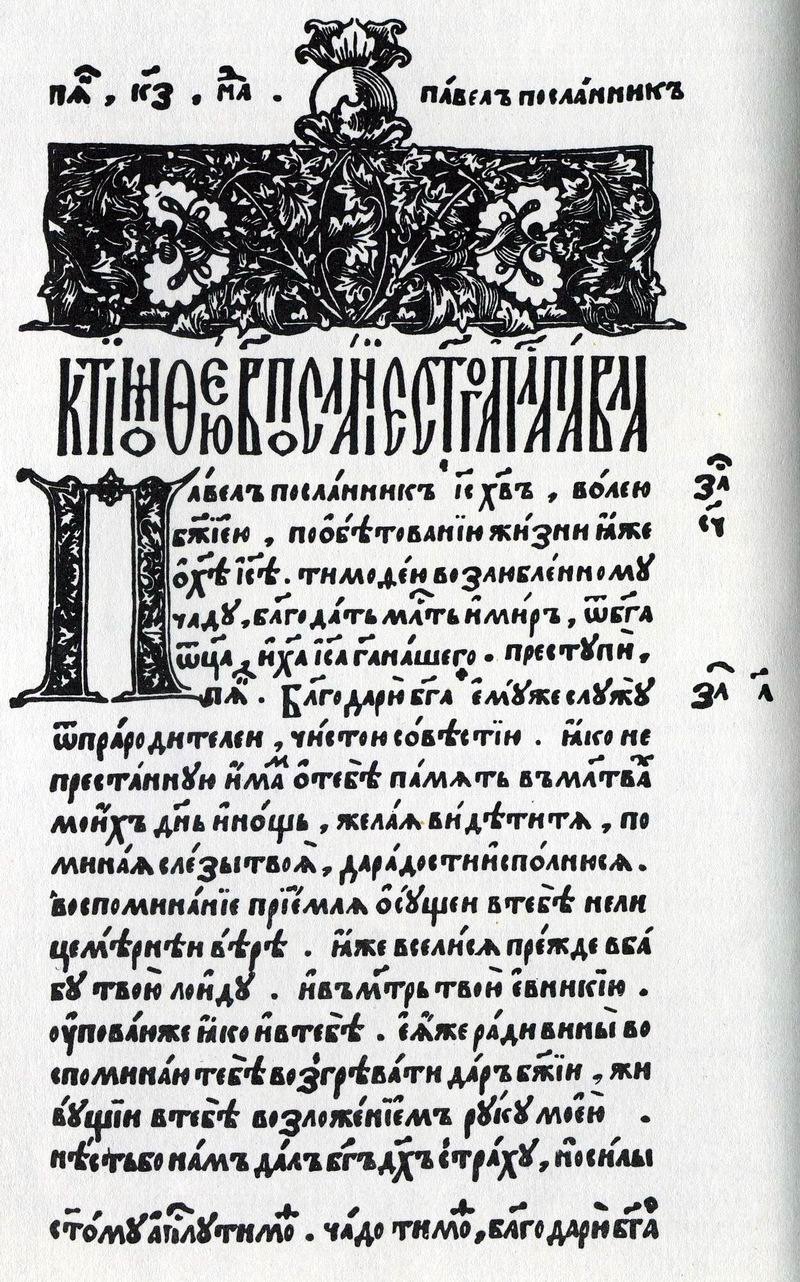 пѧⷦ҇, к҃з, на҇. па́велъ посла́нникъ
К ТИМОѲЕЮ В҃ ПОСЛА́НЇЕ СТ҃ГО АП҇ЛА ПА́ВЛА
Па́велъ посла́нникъ і҆с҃ хв҃ъ, во́лею
бж҃їею, по ѻ҆бѣтова́нїю жи́зни ꙗ҆́же
ѻ҆ хѣ҃ і҆с҃ѣ. тимоѳе́ю возлю́бленному
ча́ду, бл҃года́ть мл҇ть и҆ ми́ръ, ѿ бг҃а
ѿц҃а, и҆ х҃а і҆с҃а г҇а на́шего. преступѝ,
пѧⷦ҇. Бл҃годарю̀ бг҃а є҆му́же служꙋ̀
ѿ пра́родителей, чи́стою со́вѣстїю. ꙗ҆́ко не
преста́нную и҆́маⷨ ѻ҆ тебѣ̀ па́мѧть въ мл҃твахъ
мои́хъ дн҃ь и҆ но́щь, жела́ѧ ви́дѣти тѧ, по
мина́ѧ сле́зы твоѧ̀, да ра́дости и҆спо́лнюсѧ.
воспомина́нїе прїе́млѧ ѻ҆ су́щей в тебѣ̀ нели
цемѣ́рнѣй вѣ́рѣ. ꙗ҆́же всели́сѧ пре́жде в ба́
бу твою̀ лои́ду. и҆ въ мт҃рь твою̀ є҆вники́ю.
ᲂу҆пова́ю же ꙗ҆́ко и҆ в тебѣ̀. є҆ѧ́же ра́ди вины̀ во
спомина́ю тебѣ̀ возгрѣва́ти да́ръ бж҃їй, жи
ву́щїй в тебѣ̀ возложе́нїемъ рꙋкꙋ̀ моє́ю.
нѣ́сть бо на́мъ да́лъ бг҃ъ дх҃ъ стра́ху, но̀ си́лы
ст҃о́му ап҇лу тимоⷴ. ча́до тимоⷴ, бл҃годарю̀ бг҃а